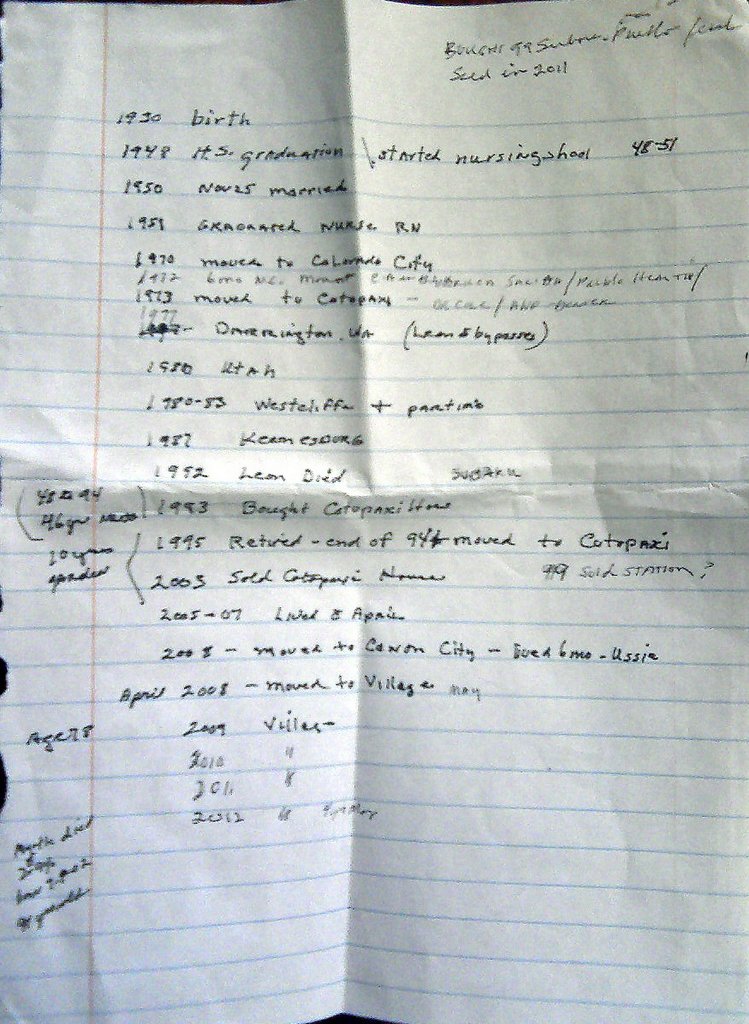 BOUGHT 99 Subaru - Pueblo
Sold in 2011
1930 birth
1948 H.S. graduation \ started nursing shool 48-51
1950 Nov 25 married
1951 GRADUATED NURSE RN
1970 moved to Colorado City
1972 6mo
1973 moved to Cotopaxi -
1977
Darrington, Wa (Leon 5 bypasses)
1980 Utah
1980-83 Westcliffe +
1987 Keenesburg
1992 Leon Died SUBARU
48 to 94
46 yr
1993 Bought Cotopaxi Home
1995 Retired - end of 94 & moved to Cotopaxi
10 years
2003 Sold Cotopaxi House 99 Sold STATION ?
2005-07 Lived April
2008 - moved to Canon City - lived 6mo -
April 2008 - moved to Village May
Age 78
2009 Village
2010 "
2011 "
2012 "
died